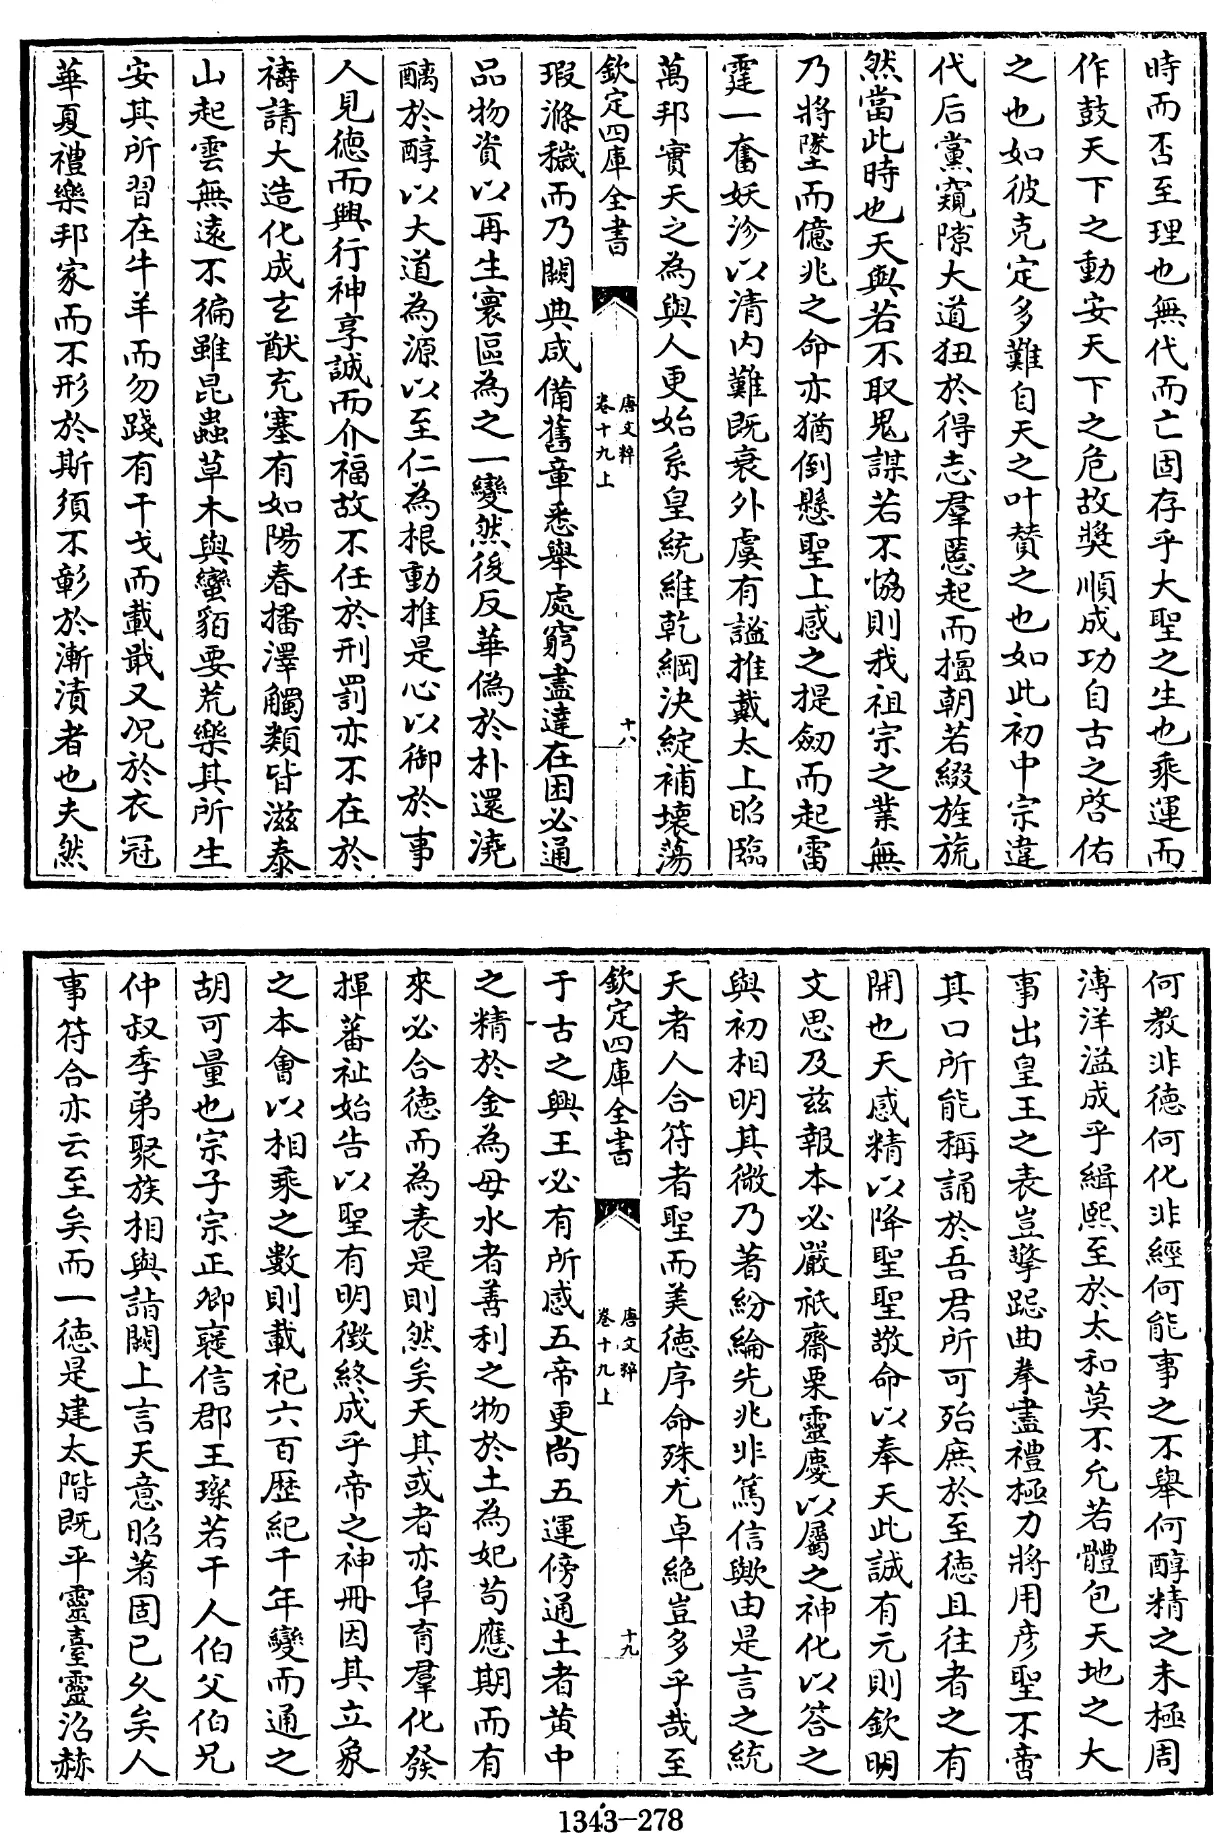 時而否至理也無代而亡固存乎大聖之生也乘運而
作鼓天下之動安天下之危故奬順成功自古之啓佑
之也如彼克定多難自天之叶賛之也如此初中宗違
代后黨窺隙大道狃於得志羣慝起而擅朝若綴旌旒
然當此時也天與若不取鬼謀若不恊則我祖宗之業無
乃將墜而億兆之命亦猶倒懸聖上感之提劒而起雷
霆一奮妖沴以清内難既衰外虞有謐推戴太上昭臨
萬邦實天之為與人更始系皇統維乾綱決綻補壞蕩
欽定四庫全書
唐文粹
卷十九上
十八
瑕滌穢而乃闕典咸備舊章悉舉處窮盡達在困必通
品物資以再生寰區為之一變然後反華僞於朴還澆
醨於醇以大道為源以至仁為根動推是心以御於事
人見德而興行神享誠而介福故不任於刑罰亦不在於
禱請大造化成玄猷充塞有如陽春播澤觸類皆滋泰
山起雲無遠不徧雖昆蟲草木與蠻貊要荒樂其所生
安其所習在牛羊而勿踐有干戈而載戢又况於衣冠
華夏禮樂邦家而不形於斯須不彰於漸漬者也夫然
何教非德何化非經何能事之不舉何醇精之未極周
溥洋溢成乎緝熙至於太和莫不允若體包天地之大
事出皇王之表豈擎跽曲拳盡禮極力將用彦聖不啻
其口所能稱誦於吾君所可殆庶於至德且往者之有
開也天感精以降聖聖敬命以奉天此誠有元則欽明
文思及兹報本必嚴祇齋栗靈慶以屬之神化以答之
與初相明其微乃著紛綸先兆非篤信歟由是言之統
天者人合符者聖而美德序命殊尤卓絶豈多乎哉至
欽定四庫全書
唐文粹
卷十九上
十九
于古之興王必有所感五帝更尚五運傍通土者黄中
之精於金為母水者善利之物於土為妃苟應期而有
來必合德而為表是則然矣天其或者亦阜育羣化發
揮蕃祉始告以聖有明徴終成乎帝之神冊因其立象
之本會以相乘之數則載祀六百歴紀千年變而通之
胡可量也宗子宗正卿襃信郡王璨若干人伯父伯兄
仲叔季弟聚族相與詣闕上言天意昭著固已久矣人
事符合亦云至矣而一德是建太階既平靈臺靈沼赫
1343-278